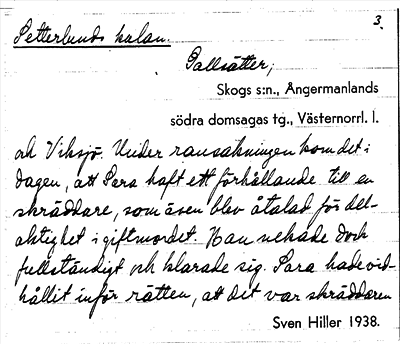 3.
Petterlunds kulan.
Gallsätter,
Skogs s:n., Ångermanlands
södra domsagas tg., Västernorrl. l.
och Viksjö. Under ransakningen kom det i
dagen, att Sara haft ett förhållande till en
skräddare, som även blev åtalad för del-
aktighet i giftmordet. Han nekade dock
fullständigt och klarade sig. Sara hade vid-
hållit inför rätten, att det var skräddaren
Sven Hiller 1938.